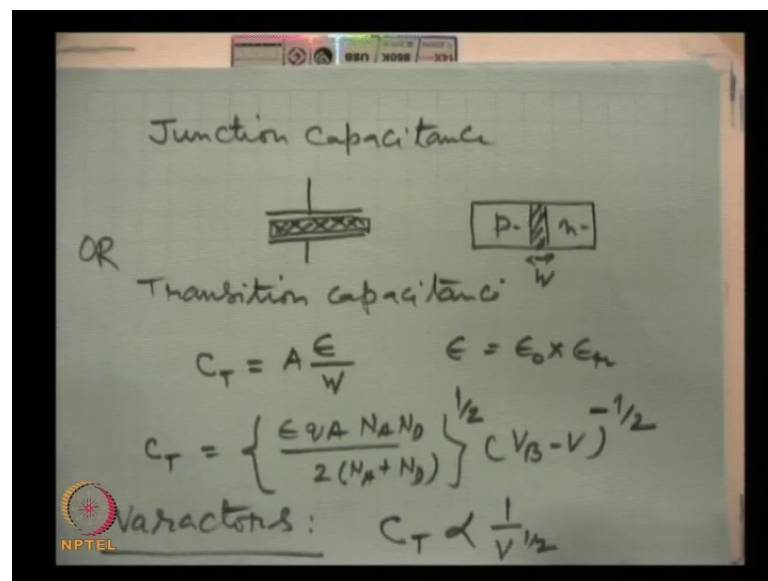 Junction Capacitance
p- n-
W
OR
Transition capacitance
C_T = A ϵ/W    ϵ = ϵ₀ x ϵ_r
C_T = { ϵ q A N_A N_D / 2 (N_A + N_D) }^1/2 (V_B - V)^-1/2
Varactors : C_T ∝ 1/V^1/2
NPTEL